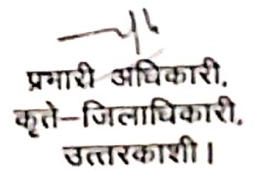 प्रभारी अधिकारी,
कृते-जिलाधिकारी,
उत्तरकाशी।